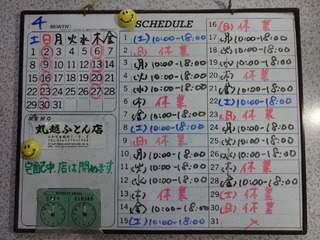 4 MONTH
土 日 月 火 水 木 金
1 2 3 4 5 6 7
8 9 10 11 12 13 14
15 16 17 18 19 20 21
22 23 24 25 26 27 28
29 30 31
MEMO
丸越ふとん店
宅配中、店は閉めます
OPEN CLOSED
SCHEDULE
1 (土) 10:00-18:00
2 (日) 休業
3 (月) 10:00-18:00
4 (火) 10:00-18:00
5 (水) 10:00-18:00
6 (木) 休業
7 (金) 10:00-18:00
8 (土) 10:00-18:00
9 (日) 休業
10 (月) 10:00-18:00
11 (火) 10:00-18:00
12 (水) 10:00-18:00
13 (木) 休業
14 (金) 休業
15 (土) 10:00-18:00
16 (日) 休業
17 (月) 10:00-18:00
18 (火) 10:00-18:00
19 (水) 10:00-18:00
20 (木) 休業
21 (金) 10:00-18:00
22 (土) 10:00-18:00
23 (日) 休業
24 (月) 10:00-18:00
25 (火) 10:00-18:00
26 (水) 10:00-18:00
27 (木) 休業
28 (金) 10:00-18:00
29 (土) 休業
30 (日) 休業
31